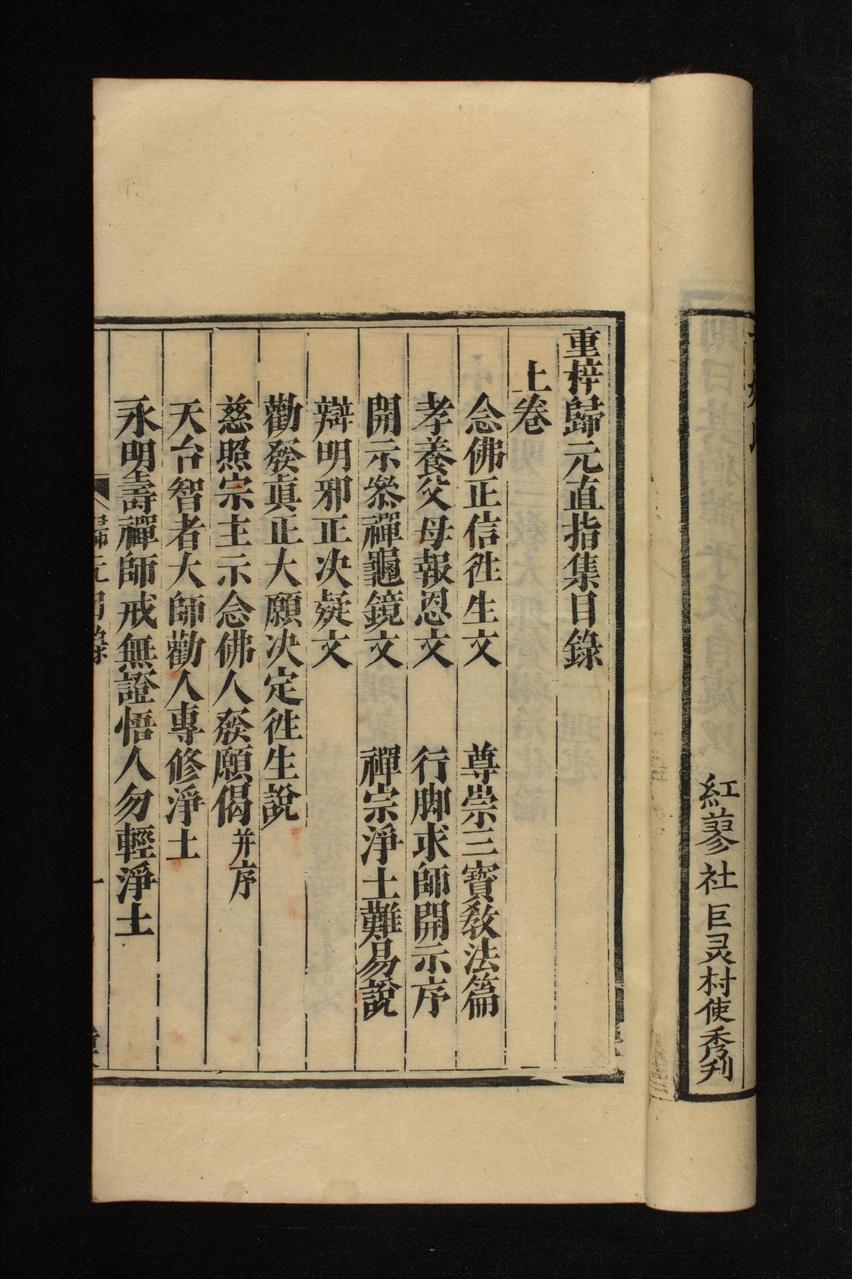 紅蓼社巨灵村使秀刋
重梓歸元直指集目錄
上卷
念佛正信徃生文　尊崇三寶敎法篇
孝養父母報恩文　行脚求師開示序
開示叅禪龜鏡文　禪宗淨土難易說
辯明邪正决疑文
勸發眞正大願决定徃生說
慈照宗主示念佛人發願偈并序
天台智者大師勸人專修淨土
永明壽禪師戒無證悟人勿輕淨土